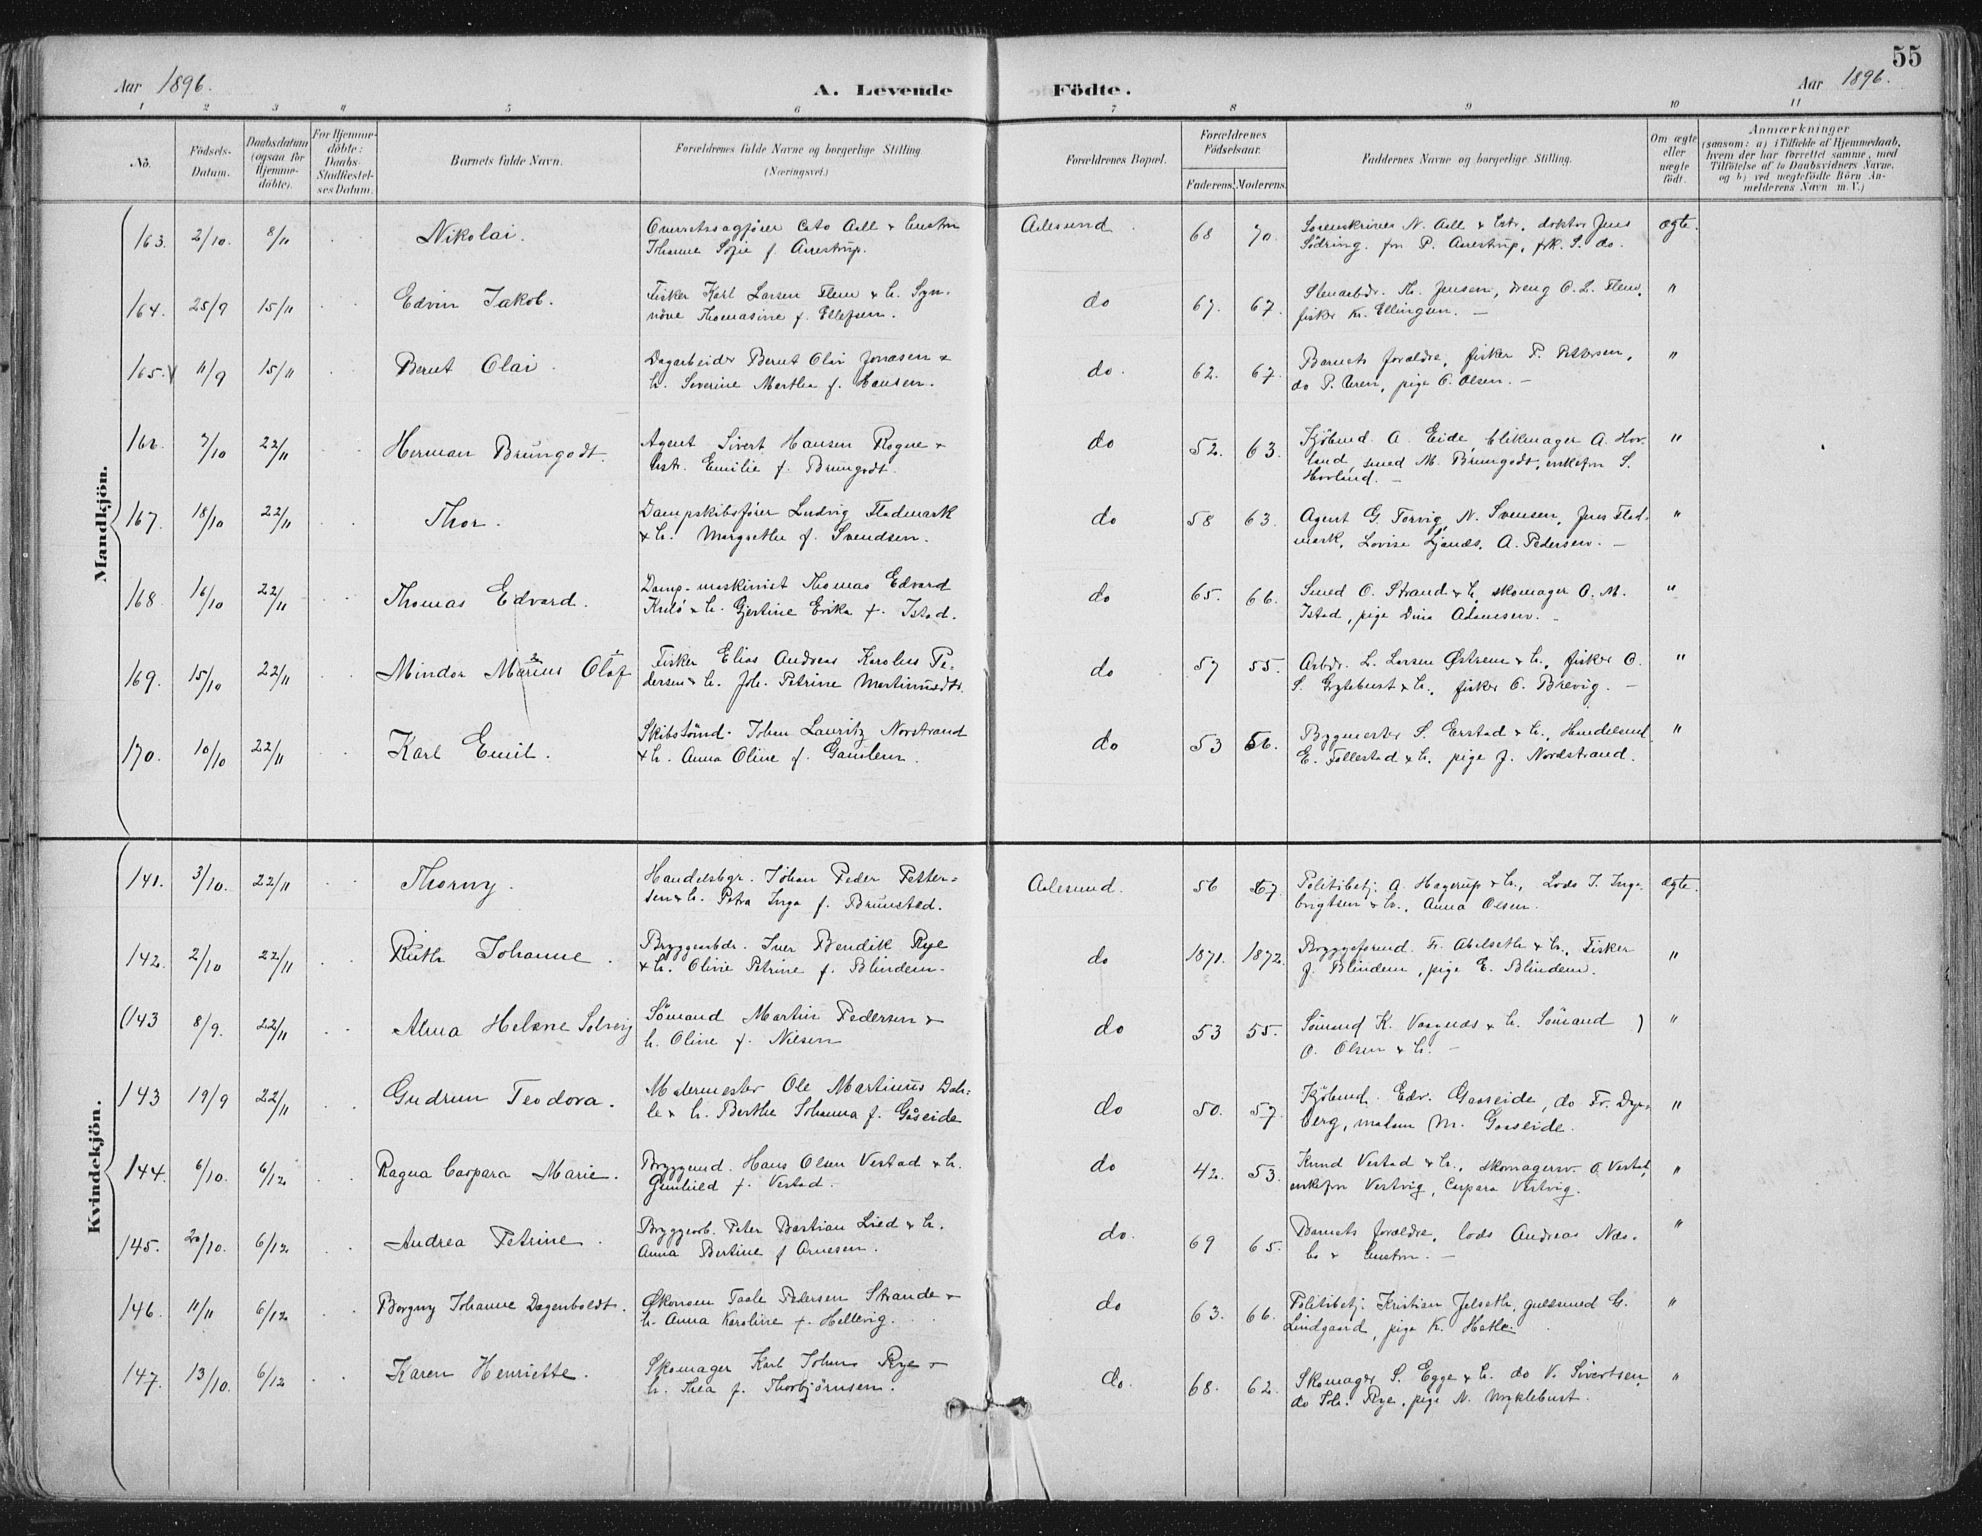 55
Aar 1896.
A. Levende Födte.
Aar 1896.
1 2 3 4 5 6 7 8 9 10 11
No.
Födsels-
Datum.
Daabsdatum
(ogsaa for
Hjemme-
döbte).
For Hjemme-
döbte:
Daabs-
Stadfæstel-
ses Datum.
Barnets fulde Navn.
Forældrenes fulde Navne og borgerlige Stilling.
(Næringsvei.)
Forældrenes Bopæl.
Forældrenes
Födselsaar.
Faderens. Moderens.
Faddernes Navne og borgerlige Stilling.
Om ægte
eller
uægte
födt.
Anmærkninger
(saasom: a) i Tilfælde af Hjemmedaab,
hvem der har forrettet samme, med
Tilföielse af to Daabsvidners Navne,
og b) ved uægtefödte Börn An-
melderens Navn m. V.)
Mandkjön.
163. 2/10. 8/11 Nikolai. Overretssagfører Cato Aall & hustru
Johanne Sofie f. Aarestrup.
Aalesund. 68 70. Sorenskriver N. Aall & hstr. doktor Jens
Södring. fru P. Aarestrup, frk. S. do. ægte.
164. 25/9 15/11 Edvin Jakob. Fisker Karl Larsen Flem & h. Syn-
növe Thomasine f. Ellefsen.
do 67. 67. Stenarbdr. Th. Jensen, dreng O. L. Flem,
fisker Kr. Ellingsen. — "
165. 11/9 15/11 Bernt Olai. Dagarbeider Bernt Olai Jonasen &
h. Severine Martha f. Hansen.
do. 62. 67. Barnets forældre, fisker P. Pettersen,
do P. Uren, pige O. Olsen. — "
166. 7/10 22/11 Herman Brungodt. Agent Sivert Hansen Rogne &
hstr. Emilie f. Brungodt.
do 52. 63. Kjöbmd. A. Eide, blikmager A. Hov-
land, smed M. Brungodt, enkefru S.
Hovland. — "
167. 18/10 22/11 Thor. Dampskibsfører Ludvig Flademark
& h. Margrethe f. Svendsen.
do 58 63. Agent G. Torvig, N. Svensen, Jens Flad-
mark, Lovise Ljanes, A. Pedersen. — "
168 16/10 22/11 Thomas Edvard. Damp-maskinist Thomas Edvard
& h. Gjertine Erika f. Istad.
do 65. 66. Smed O. Strand & h. skomager O. M.
Istad, pige Dina Adamsen. "
169. 15/10 22/11 Mindor Marius Olaf Fisker Elias Andreas Karolus Pe-
dersen & h. Joh. Petrine Martinusdtr.
do 57 55. Arbdr. L. Larsen Østrem & h., fisker O.
S. Grytebust & h., fisker O. Brevig. — "
170. 10/10 22/11 Karl Emil. Skibstömd. Johan Lauritz Norstrand
& h. Anna Oline f. Gamlem.
do 53 56. Bygmester S. Erstad & h., Handelsmd.
E. Follestad & h. pige J. Nordstrand. "
Kvindekjön.
141. 3/10. 22/11 Thorny. Handelsbgr. Johan Peder Petter-
sen & h. Petra Inga f. Brunstad.
Aalesund. 56 67. Politibetj. A. Hagerup & h., Lods J. Inge-
brigtsen & h., Anna Olsen. ægte.
142. 2/10 22/11 Ruth Johanne. Bryggearbdr. Iver Bendik Rye
& h. Olivie Petrine f. Blindem.
do 1871. 1872. Bryggeformd. Fr. Abelseth & h., Fisker
J. Blindem, pige E. Blindem. "
(143 8/9. 22/11 Alma Helene Solveig Sömand Martin Pedersen &
h. Oline f. Nilsen
do 53 55. Sömand K. Vaagnæs & h. Sömand )
O. Olsen & h. — "
143 19/9 22/11 Gudrun Teodora. Malermester Ole Martinus Dah-
le & h. Berthe Johanna f. Gåseide
do 50. 57. Kjöbmd. Edv. Gaaseide, do Fr. Dyb-
berg, madam M. Gaaseide. "
144. 6/10. 6/12 Ragna Caspara Marie. Bryggemd. Hans Olsen Vestad & h.
Gunhild f. Vestad.
do 42. 53. Knud Vestad & h., skomagersv. O. Vestad,
enkefru Vestvig, Caspara Vestvig. "
145. 20/10. 6/12 Andrea Petrine. Bryggearb. Peter Bastian Lied & h.
Anna Bertine f Arnesen.
do. 69 65. Barnets forældre, lods Andreas Næs-
bø & hustru. — "
146. 11/11 6/12 Borgny Johanne Dagenboldt. Økonom Taale Pedersen Strande &
h. Anna Karoline f. Hellevig.
do 63. 66. Politibetj. Kristian Jelseth, guldsmed G.
Lindgaard, pige K. Hatle. "
147. 13/10. 6/12 Karen Henriette. Skomager Karl Johan Rye &
h. Thea f. Thorbjörnsen.
do. 68. 62. Skomager S. Egge & h. do V. Sivertsen,
do Joh. Rye, pige N. Myklebust. "